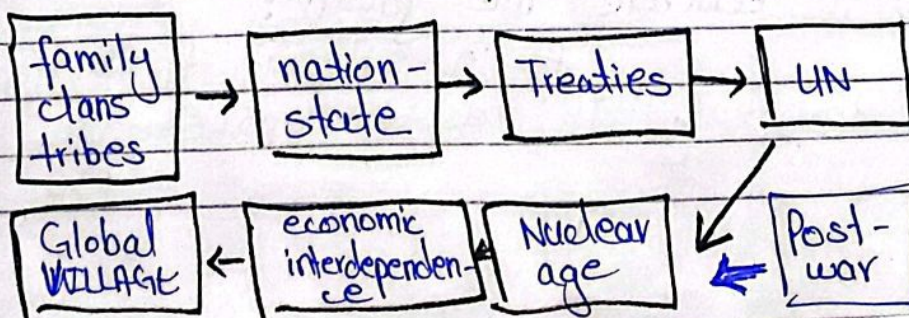 family
clans
tribes
nation-
state
Treaties
UN
Post-
war
Nuclear
age
economic
interdependen-
ce
Global
VILLAGE